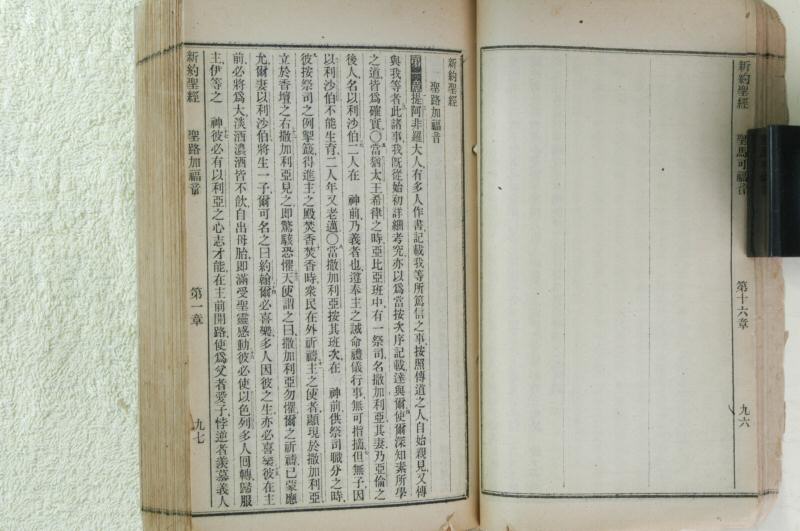 新約聖經 聖馬可福音 第十六章 九六
新約聖經
聖路加福音
第一章提阿非羅大人、有多人作書、記載我等所篤信之事、按照傳道之人、自始親見、又傳
與我等者、此諸事我旣從始初詳細考究、亦以爲當按次序記載、達與爾、使爾深知素所學
之道、皆爲確實、〇當猶太王希律之時、亞比亞班中、有一祭司、名撒加利亞、其妻乃亞倫之
後人、名以利沙伯、二人在 神前、乃義者也、遵奉主之誡命禮儀、行事無可指摘、但無子、因
以利沙伯不能生育、二人年又老邁、〇當撒加利亞按其班次、在 神前、供祭司職分之時、
彼按祭司之例掣籤、得進主之殿焚香、焚香時、衆民在外祈禱、主之使者、顯現於撒加利亞
立於香壇之右、撒加利亞見之、卽驚駭恐懼、天使謂之曰、撒加利亞勿懼、爾之祈禱、已蒙應
允、爾妻以利沙伯將生一子、爾可名之曰約翰、爾必喜樂、多人因彼之生、亦必喜樂、彼在主
前、必將爲大、淡酒濃酒皆不飲、自出母胎、卽滿受聖靈感動、彼必使以色列多人回轉、歸服
主、伊等之 神、彼必有以利亞之心志才能、在主前開路、使爲父者愛子、悖逆者羨慕義人
新約聖經 聖路加福音 第一章 九七